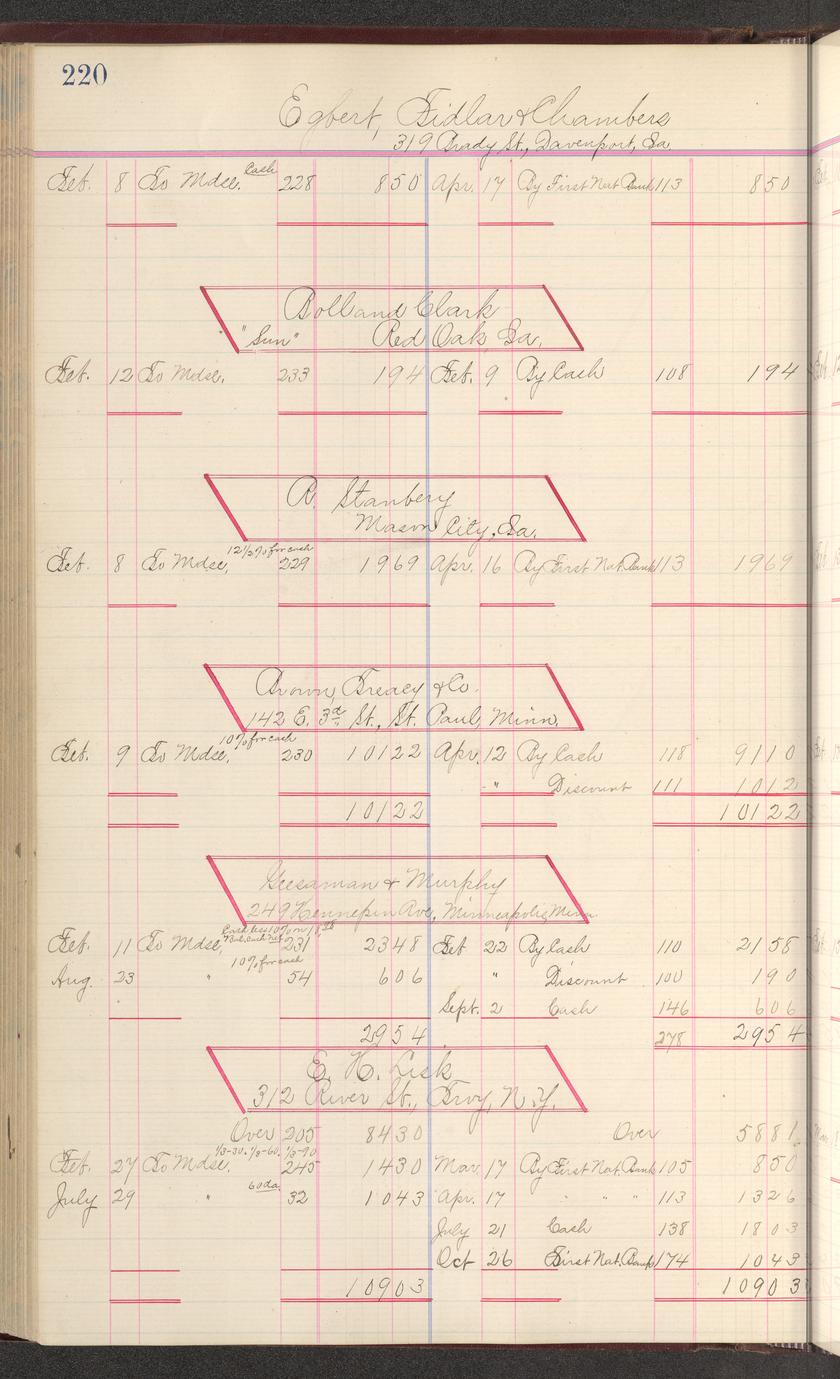 220
Egbert, Fidlar & Chambers
319 Brady St., Davenport, Ia.
Feb. 8 To Mdse. Cash 228 850 Apr. 17 By First Nat Bank 113 850
Rolland Clark
"Sun" Red Oak, Ia.
Feb. 12 To Mdse. 233 194 Feb. 9 By Cash 108 194
R. Stanbery
Mason City, Ia.
12 1/2 % for cash
Feb. 8 To Mdse, 229 1969 Apr. 16 By First Nat. Bank 113 1969
Brown, Treacy & Co.
142 E. 3d St., St. Paul, Minn.
10% for cash
Feb. 9 To Mdse, 230 10122 Apr. 12 By Cash 118 9110
" Discount 111 1012
10122 10122
Geesaman & Murphy
249 Hennepin Ave, Minneapolis, Minn
Cash less 10% on 18
Bal. Cash Net
Feb. 11 To Mdse, 231 2348 Feb 22 By Cash 110 2158
10% for cash
Aug. 23 " 54 606 " Discount 100 190
Sept. 2 Cash 146 606
2954 278 2954
E. H. Lisk
312 River St., Troy, N.Y.
Over 205 8430 Over 5881
1/3-30. 1/3-60. 1/3-90
Feb. 27 To Mdse. 245 1430 Mar. 17 By First Nat. Bank 105 850
60 da.
July 29 " 32 1043 Apr. 17 " " " 113 1326
July 21 Cash 138 1803
Oct 26 First Nat. Bank 174 1043
10903 10903